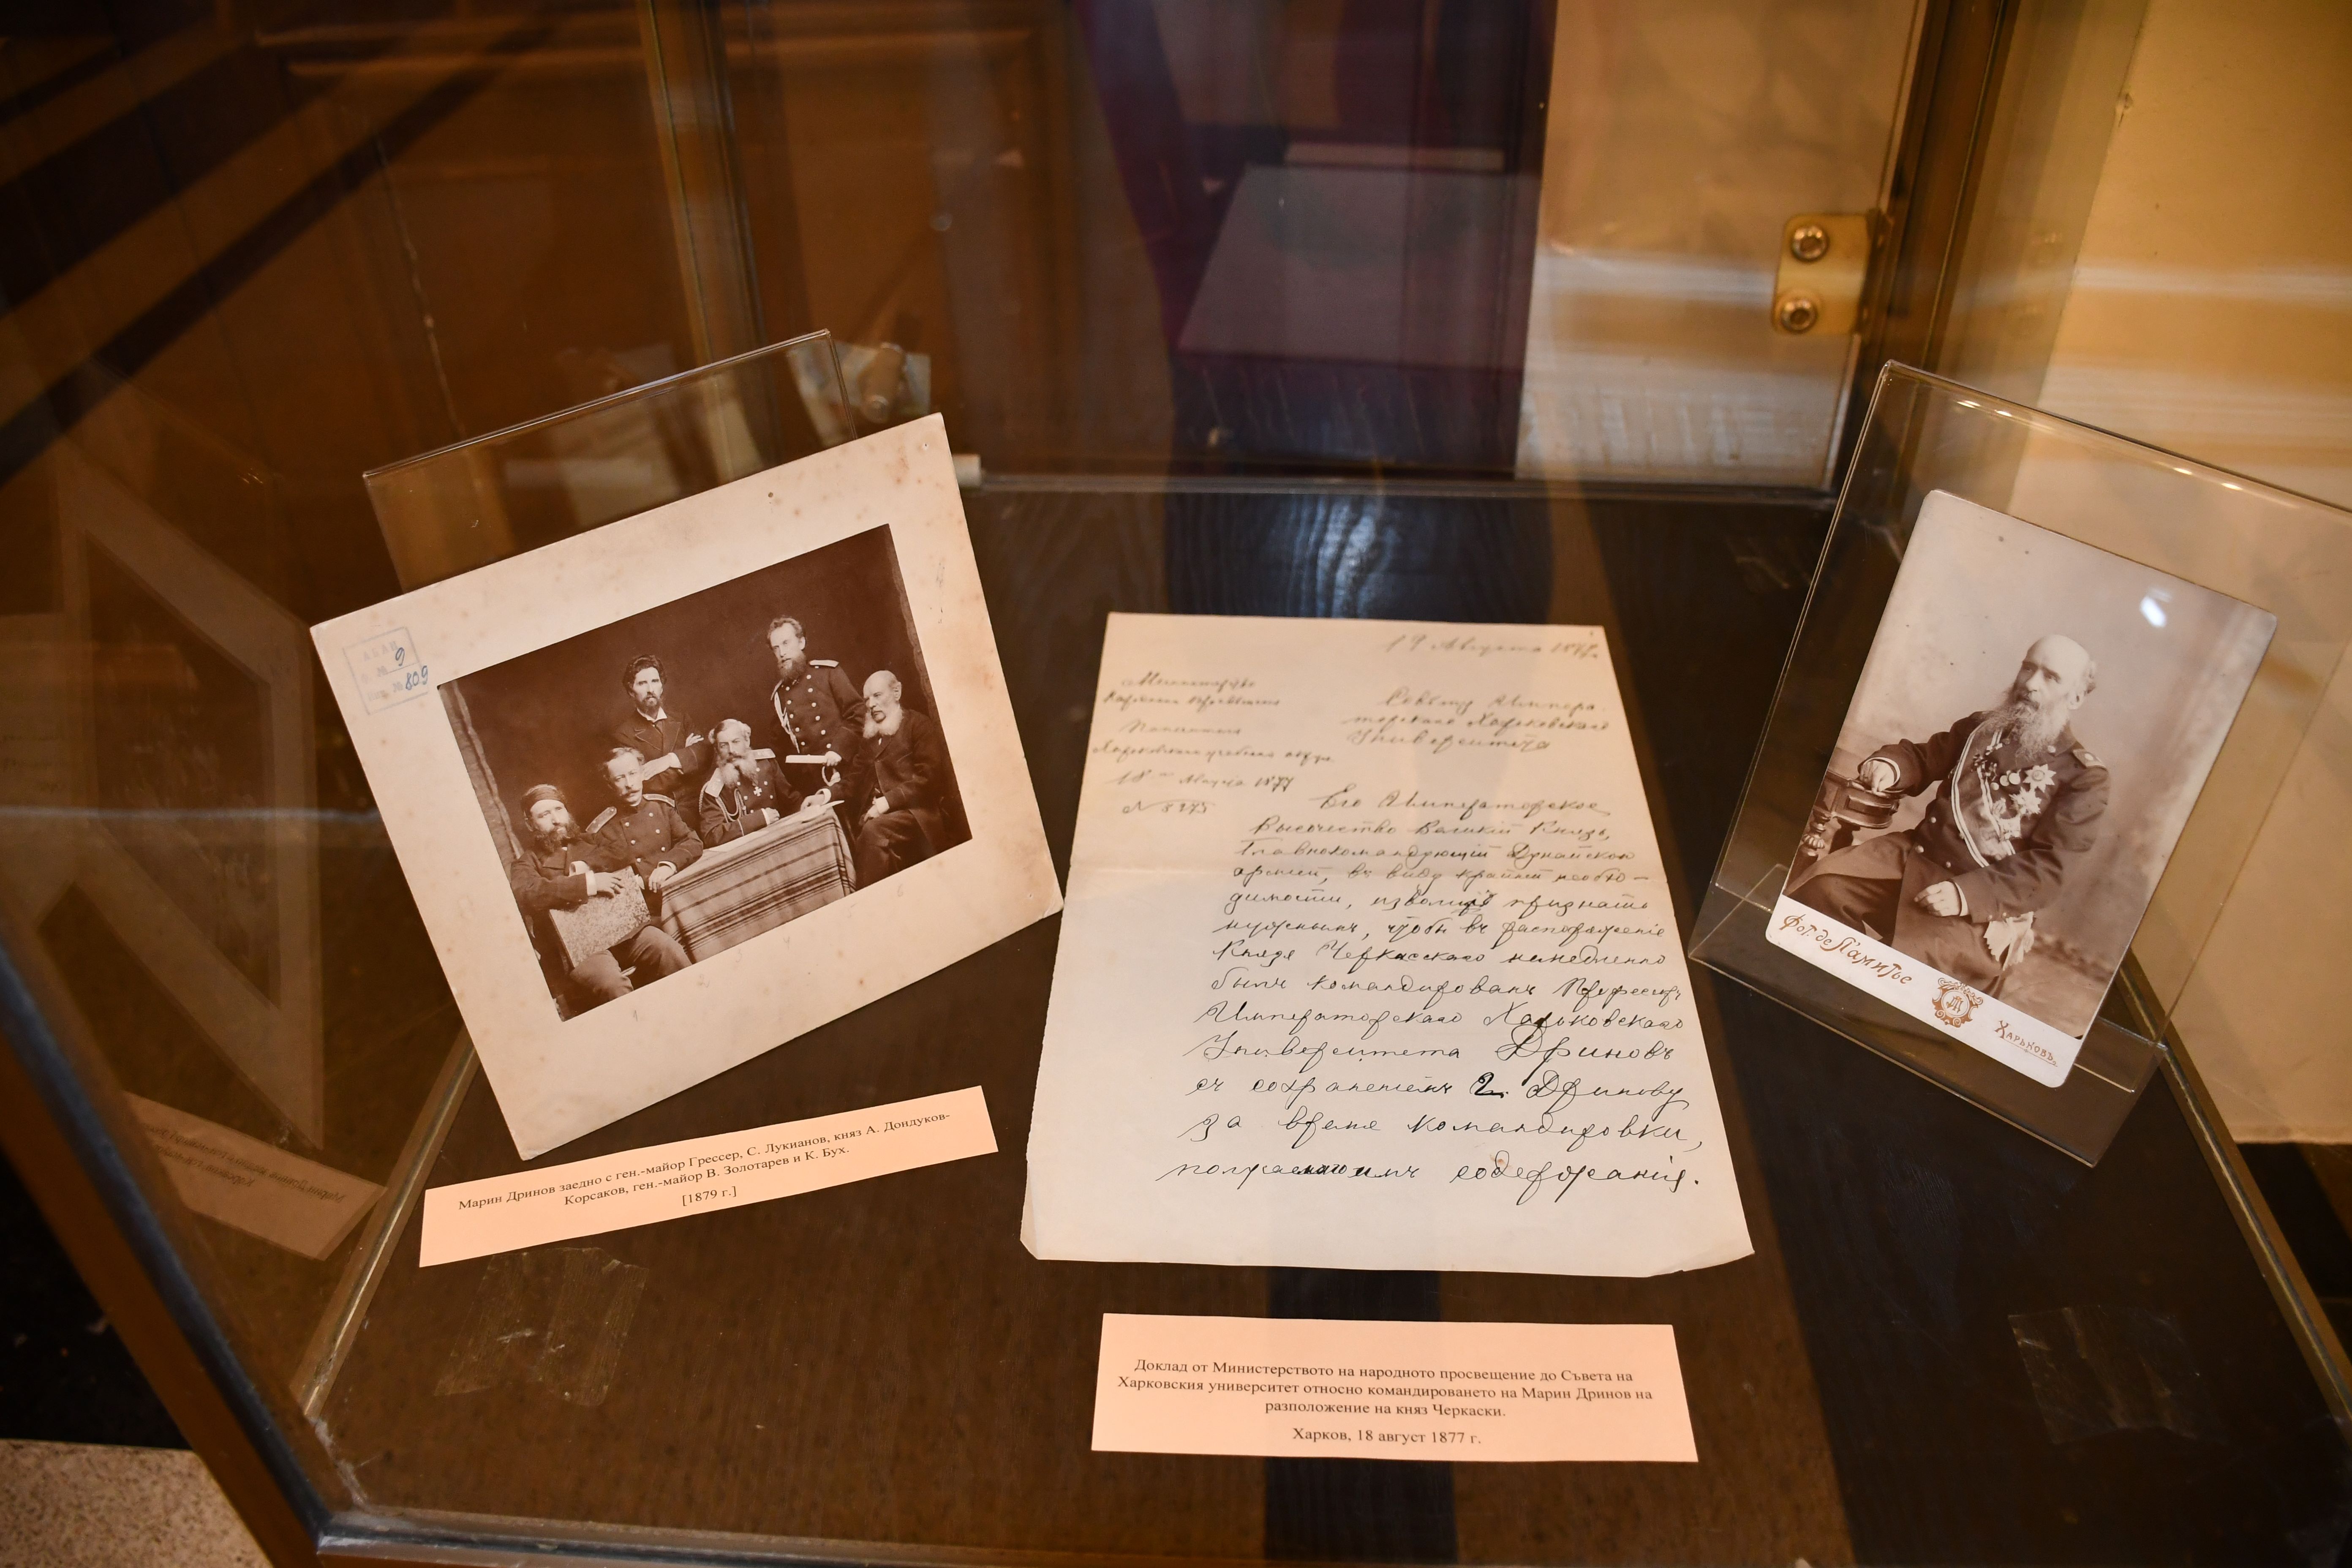 № 9
№ 809
Марин Дринов заедно с ген.-майор Грессер, С. Лукианов, княз А. Дондуков-
Корсаков, ген.-майор В. Золотарев и К. Бух.
[1879 г.]
19 Августа 1877
Министерство
Попечитель
Харьковскаго учебнаго округа
18 Августа 1877
№ 3275
Совѣту Импера-
торскаго Харьковскаго
Университета
Его Императорское
Высочество Великій Князь,
Главнокомандующій Дунайской
арміей, въ виду крайней необхо-
димости, изволилъ признать
нужнымъ, чтобы въ распоряженіе
Князя Черкасскаго немедленно
былъ командированъ Профессоръ
Императорскаго Харьковскаго
Университета Дриновъ
съ сохраненіемъ г. Дринову
за время командировки,
получаемаго имъ содержанія.
Доклад от Министерството на народното просвещение до Съвета на
Харковския университет относно командироването на Марин Дринов на
разположение на княз Черкаски.
Харков, 18 август 1877 г.
Фот. де Ламитье
Харьковъ.